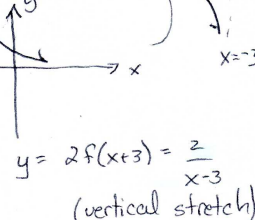 y
x
x=-3
y = 2f(x+3) = 2/(x-3)
(vertical stretch)